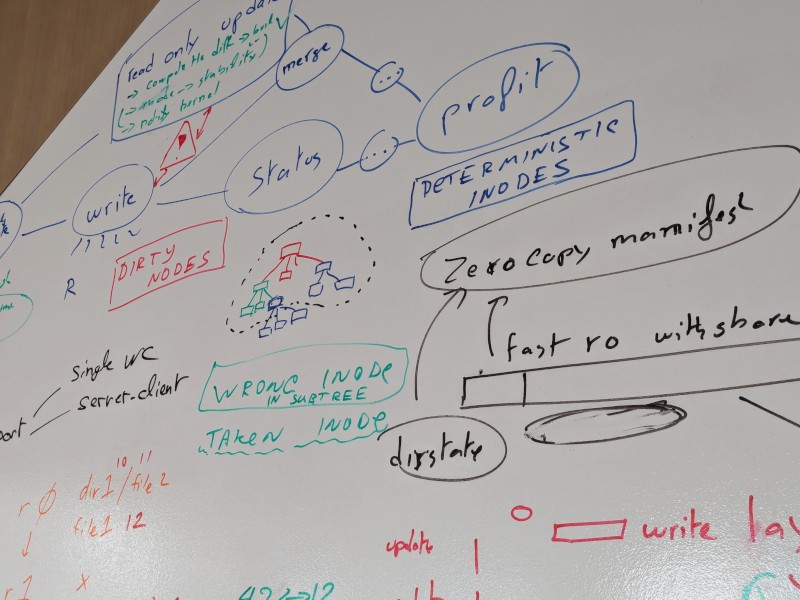 read only
→ compute the diff →
→ stability)
→ notify kernel
merge
...
profit
write
Status
...
DETERMINISTIC
INODES
R
DIRTY
NODES
Zero copy manifest
fast ro with share
single wc
server-client
WRONG INODE
IN SUBTREE
TAKEN INODE
dirstate
10 11
r Ø dir1/file2
file1 12
r1 x
update
write